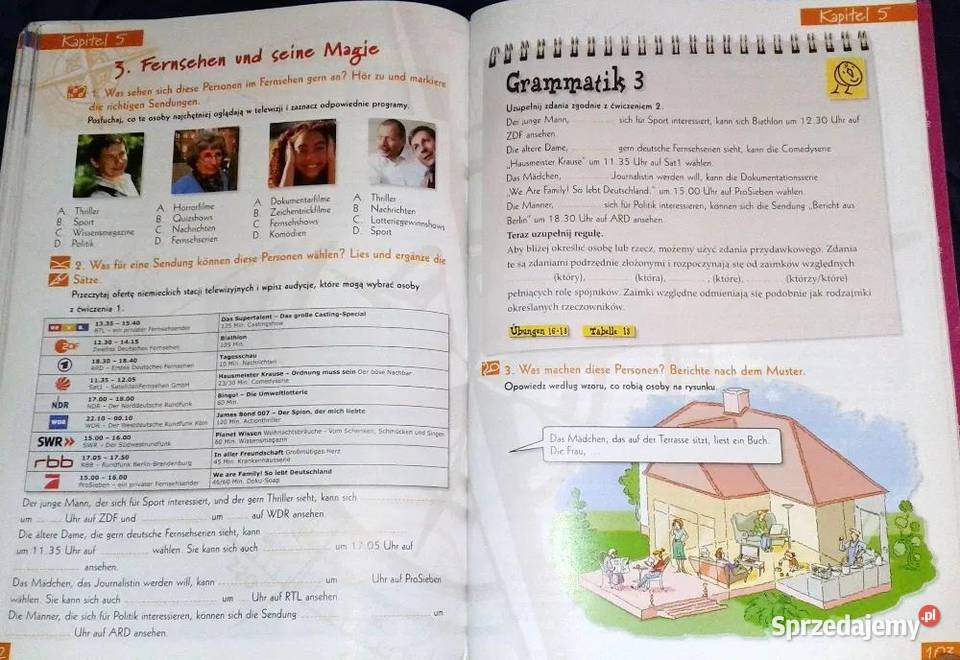 Kapitel 5
3. Fernsehen und seine Magie
1. Was sehen sich diese Personen im Fernsehen gern an? Hör zu und markiere
die richtigen Sendungen.
Posłuchaj, co te osoby najchętniej oglądają w telewizji i zaznacz odpowiednie programy.
A. Thriller
B. Sport
C. Wissensmagazine
D. Politik
A. Horrorfilme
B. Quizshows
C. Nachrichten
D. Fernsehserien
A. Dokumentarfilme
B. Zeichentrickfilme
C. Fernsehshows
D. Komödien
A. Thriller
B. Nachrichten
C. Lotteriegewinnshows
D. Sport
2. Was für eine Sendung können diese Personen wählen? Lies und ergänze die
Sätze.
Przeczytaj ofertę niemieckich stacji telewizyjnych i wpisz audycje, które mogą wybrać osoby
z ćwiczenia 1.
13.35 – 15.40
RTL – ein privater Fernsehsender
Das Supertalent – Das große Casting-Special
125 Min. Castingshow
ZDF
12.30 – 14.15
Zweites Deutsches Fernsehen
Biathlon
105 Min.
18.30 – 18.40
ARD – Erstes Deutsches Fernsehen
Tagesschau
10 Min. Nachrichten
11.35 – 12.05
Sat1 – SatellitenFernsehen GmbH
Hausmeister Krause – Ordnung muss sein Der böse Nachbar
23/30 Min. Comedyserie
NDR
17.00 – 18.00
NDR – Der Norddeutsche Rundfunk
Bingo! – Die Umweltlotterie
60 Min.
WDR
22.10 – 00.10
WDR – Der Westdeutsche Rundfunk Köln
James Bond 007 – Der Spion, der mich liebte
120 Min. Actionthriller
SWR
15.00 – 16.00
SWR – Der Südwestrundfunk
Planet Wissen Weihnachtsbräuche – Vom Schenken, Schmücken und Singen
60 Min. Wissensmagazin
rbb
17.05 – 17.50
RBB – Rundfunk Berlin-Brandenburg
In aller Freundschaft Großmütiges Herz
45 Min. Krankenhausserie
7
15.00 – 16.00
ProSieben – ein privater Fernsehsender
We are Family! So lebt Deutschland
46/60 Min. Doku-Soap
Der junge Mann, der sich für Sport interessiert, und der gern Thriller sieht, kann sich
um Uhr auf ZDF und um auf WDR ansehen.
Die ältere Dame, die gern deutsche Fernsehserien sieht, kann
um 11.35 Uhr auf wählen. Sie kann sich auch um 17.05 Uhr auf
ansehen.
Das Mädchen, das Journalistin werden will, kann um Uhr auf ProSieben
wählen. Sie kann sich auch um Uhr auf RTL ansehen.
Die Männer, die sich für Politik interessieren, können sich die Sendung um
Uhr auf ARD ansehen.
2
Kapitel 5
Grammatik 3
Uzupełnij zdania zgodnie z ćwiczeniem 2.
Der junge Mann, sich für Sport interessiert, kann sich Biathlon um 12.30 Uhr auf
ZDF ansehen.
Die ältere Dame, gern deutsche Fernsehserien sieht, kann die Comedyserie
„Hausmeister Krause" um 11.35 Uhr auf Sat1 wählen.
Das Mädchen, Journalistin werden will, kann die Dokumentationsserie
„We Are Family! So lebt Deutschland." um 15.00 Uhr auf ProSieben wählen.
Die Männer, sich für Politik interessieren, können sich die Sendung „Bericht aus
Berlin" um 18.30 Uhr auf ARD ansehen.
Teraz uzupełnij regułę.
Aby bliżej określić osobę lub rzecz, możemy użyć zdania przydawkowego. Zdania
te są zdaniami podrzednie złożonymi i rozpoczynają się od zaimków względnych
(który), (która), , (które), (którzy/które)
pełniących rolę spójników. Zaimki względne odmieniają się podobnie jak rodzajniki
określonych rzeczowników.
Übungen 16-18 Tabelle 18
20 3. Was machen diese Personen? Berichte nach dem Muster.
Opowiedz według wzoru, co robią osoby na rysunku.
Das Mädchen, das auf der Terrasse sitzt, liest ein Buch.
Die Frau,
Sprzedajemy.pl
103